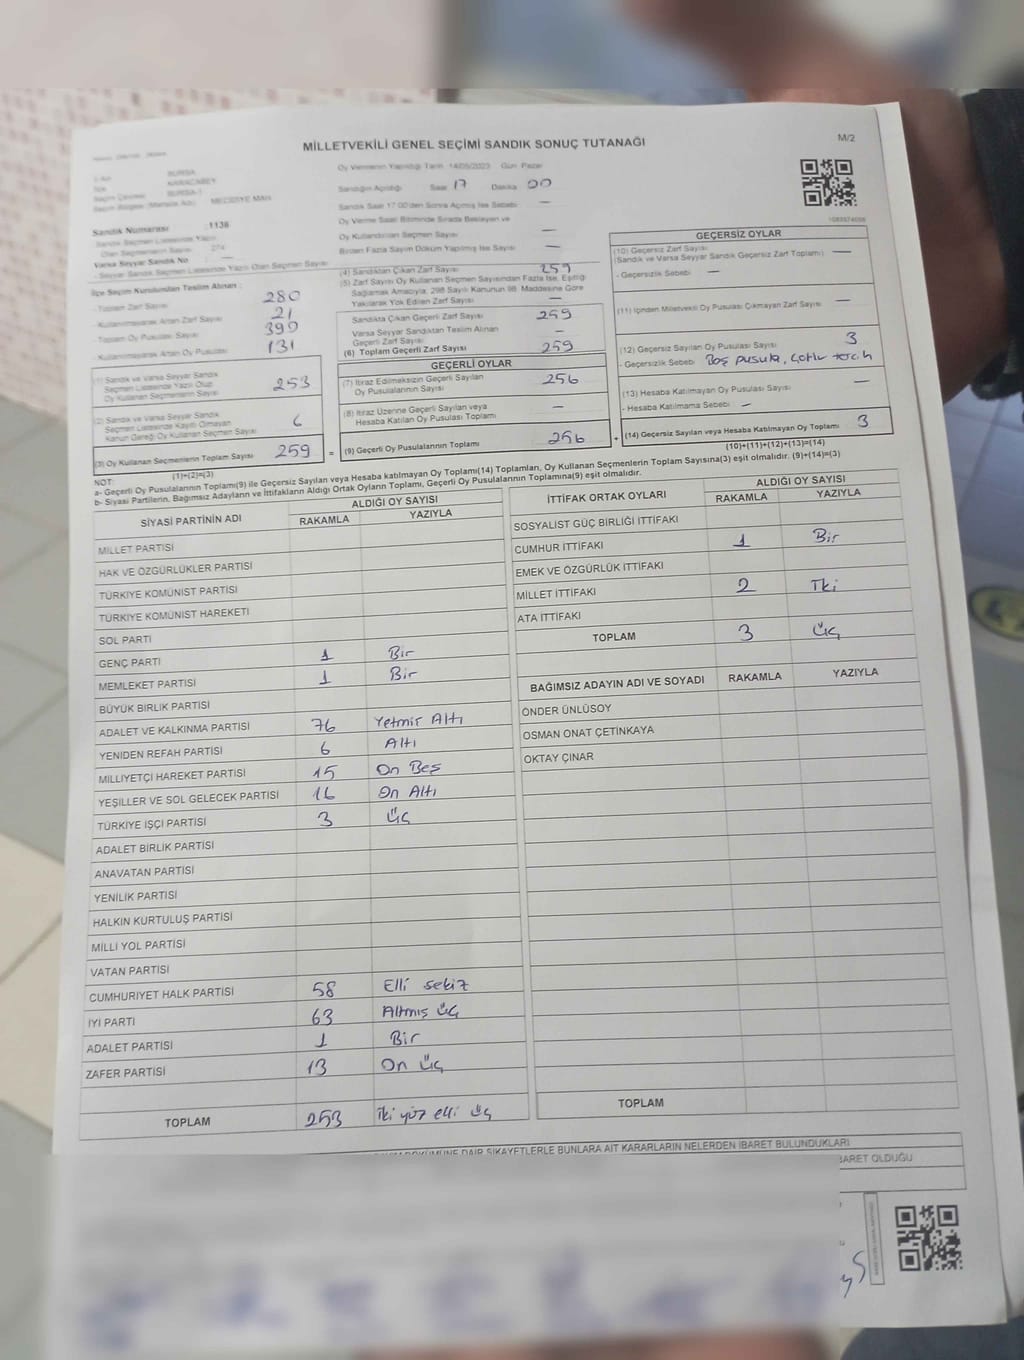 MİLLETVEKİLİ GENEL SEÇİMİ SANDIK SONUÇ TUTANAĞI
M/2
Oy Vermenin Yapıldığı Tarih 14/05/2023 Gün Pazar
BURSA
KARACABEY
BURSA-1
MECİDİYE MAH.
Sandığın Açıldığı Saat 17 Dakika 00
Sandık Saat 17:00'den Sonra Açılmış İse Sebebi —
Oy Verme Saati Bitiminde Sırada Bekleyen ve
Oy Kullandırılan Seçmen Sayısı —
Birden Fazla Sayım Döküm Yapılmış İse Sayısı —
Sandık Numarası :1136
Sandık Seçmen Listesinde Yazılı
Olan Seçmenlerin Sayısı : 274
Varsa Seyyar Sandık No : —
- Seyyar Sandık Seçmen Listesinde Yazılı Olan Seçmen Sayısı
İlçe Seçim Kurulundan Teslim Alınan :
- Toplam Zarf Sayısı 280
- Kullanılmayarak Artan Zarf Sayısı 21
- Toplam Oy Pusulası Sayısı 390
- Kullanılmayarak Artan Oy Pusulası 131
(1) Sandık ve Varsa Seyyar Sandık
Seçmen Listesinde Yazılı Olup
Oy Kullanan Seçmenlerin Sayısı 253
(2) Sandık ve Varsa Seyyar Sandık
Seçmen Listesinde Kayıtlı Olmayan
Kanun Gereği Oy Kullanan Seçmen Sayısı 6
(3) Oy Kullanan Seçmenlerin Toplam Sayısı 259
(1)+(2)=(3)
(4) Sandıktan Çıkan Zarf Sayısı 259
(5) Zarf Sayısı Oy Kullanan Seçmen Sayısından Fazla İse, Eşitliği
Sağlamak Amacıyla, 298 Sayılı Kanunun 98. Maddesine Göre
Yakılarak Yok Edilen Zarf Sayısı —
Sandıkta Çıkan Geçerli Zarf Sayısı 259
Varsa Seyyar Sandıktan Teslim Alınan
Geçerli Zarf Sayısı —
(6) Toplam Geçerli Zarf Sayısı 259
GEÇERLİ OYLAR
(7) İtiraz Edilmeksizin Geçerli Sayılan
Oy Pusulalarının Sayısı 256
(8) İtiraz Üzerine Geçerli Sayılan veya
Hesaba Katılan Oy Pusulası Toplamı —
= (9) Geçerli Oy Pusulalarının Toplamı 256 +
GEÇERSİZ OYLAR
(10) Geçersiz Zarf Sayısı
(Sandık ve Varsa Seyyar Sandık Geçersiz Zarf Toplamı) —
- Geçersizlik Sebebi : —
(11) İçinden Milletvekili Oy Pusulası Çıkmayan Zarf Sayısı —
(12) Geçersiz Sayılan Oy Pusulası Sayısı 3
- Geçersizlik Sebebi Boş pusula, çoklu tercih
(13) Hesaba Katılmayan Oy Pusulası Sayısı —
- Hesaba Katılmama Sebebi : —
(14) Geçersiz Sayılan veya Hesaba Katılmayan Oy Toplamı 3
(10)+(11)+(12)+(13)=(14)
NOT:
a- Geçerli Oy Pusulalarının Toplamı(9) ile Geçersiz Sayılan veya Hesaba katılmayan Oy Toplamı(14) Toplamları, Oy Kullanan Seçmenlerin Toplam Sayısına(3) eşit olmalıdır. (9)+(14)=(3)
b- Siyasi Partilerin, Bağımsız Adayların ve İttifakların Aldığı Ortak Oyların Toplamı, Geçerli Oy Pusulalarının Toplamına(9) eşit olmalıdır.
SİYASİ PARTİNİN ADI ALDIĞI OY SAYISI
RAKAMLA YAZIYLA
MİLLET PARTİSİ
HAK VE ÖZGÜRLÜKLER PARTİSİ
TÜRKİYE KOMÜNİST PARTİSİ
TÜRKİYE KOMÜNİST HAREKETİ
SOL PARTİ
GENÇ PARTİ 1 Bir
MEMLEKET PARTİSİ 1 Bir
BÜYÜK BİRLİK PARTİSİ
ADALET VE KALKINMA PARTİSİ 76 Yetmiş Altı
YENİDEN REFAH PARTİSİ 6 Altı
MİLLİYETÇİ HAREKET PARTİSİ 15 On Beş
YEŞİLLER VE SOL GELECEK PARTİSİ 16 On Altı
TÜRKİYE İŞÇİ PARTİSİ 3 Üç
ADALET BİRLİK PARTİSİ
ANAVATAN PARTİSİ
YENİLİK PARTİSİ
HALKIN KURTULUŞ PARTİSİ
MİLLİ YOL PARTİSİ
VATAN PARTİSİ
CUMHURİYET HALK PARTİSİ 58 Elli sekiz
İYİ PARTİ 63 Altmış üç
ADALET PARTİSİ 1 Bir
ZAFER PARTİSİ 13 On üç
TOPLAM 253 İki yüz elli üç
İTTİFAK ORTAK OYLARI ALDIĞI OY SAYISI
RAKAMLA YAZIYLA
SOSYALİST GÜÇ BİRLİĞİ İTTİFAKI
CUMHUR İTTİFAKI 1 Bir
EMEK VE ÖZGÜRLÜK İTTİFAKI
MİLLET İTTİFAKI 2 İki
ATA İTTİFAKI
TOPLAM 3 Üç
BAĞIMSIZ ADAYIN ADI VE SOYADI RAKAMLA YAZIYLA
ÖNDER ÜNLÜSOY
OSMAN ONAT ÇETİNKAYA
OKTAY ÇINAR
TOPLAM
DAİR ŞİKAYETLERLE BUNLARA AİT KARARLARIN NELERDEN İBARET BULUNDUKLARI
İBARET OLDUĞU